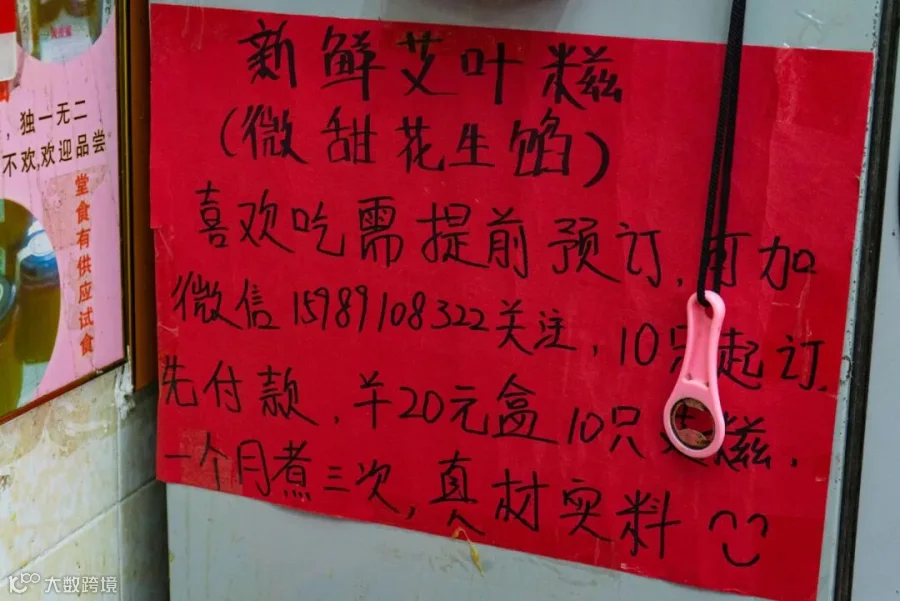 新鲜艾叶糍
(微甜花生馅)
喜欢吃需提前预订,可加
微信15989108322关注,10只起订,
先付款,¥20元盒10只艾糍,
一个月煮三次,真材实料
,独一无二
不欢,欢迎品尝
堂食有供应试食
大数跨境